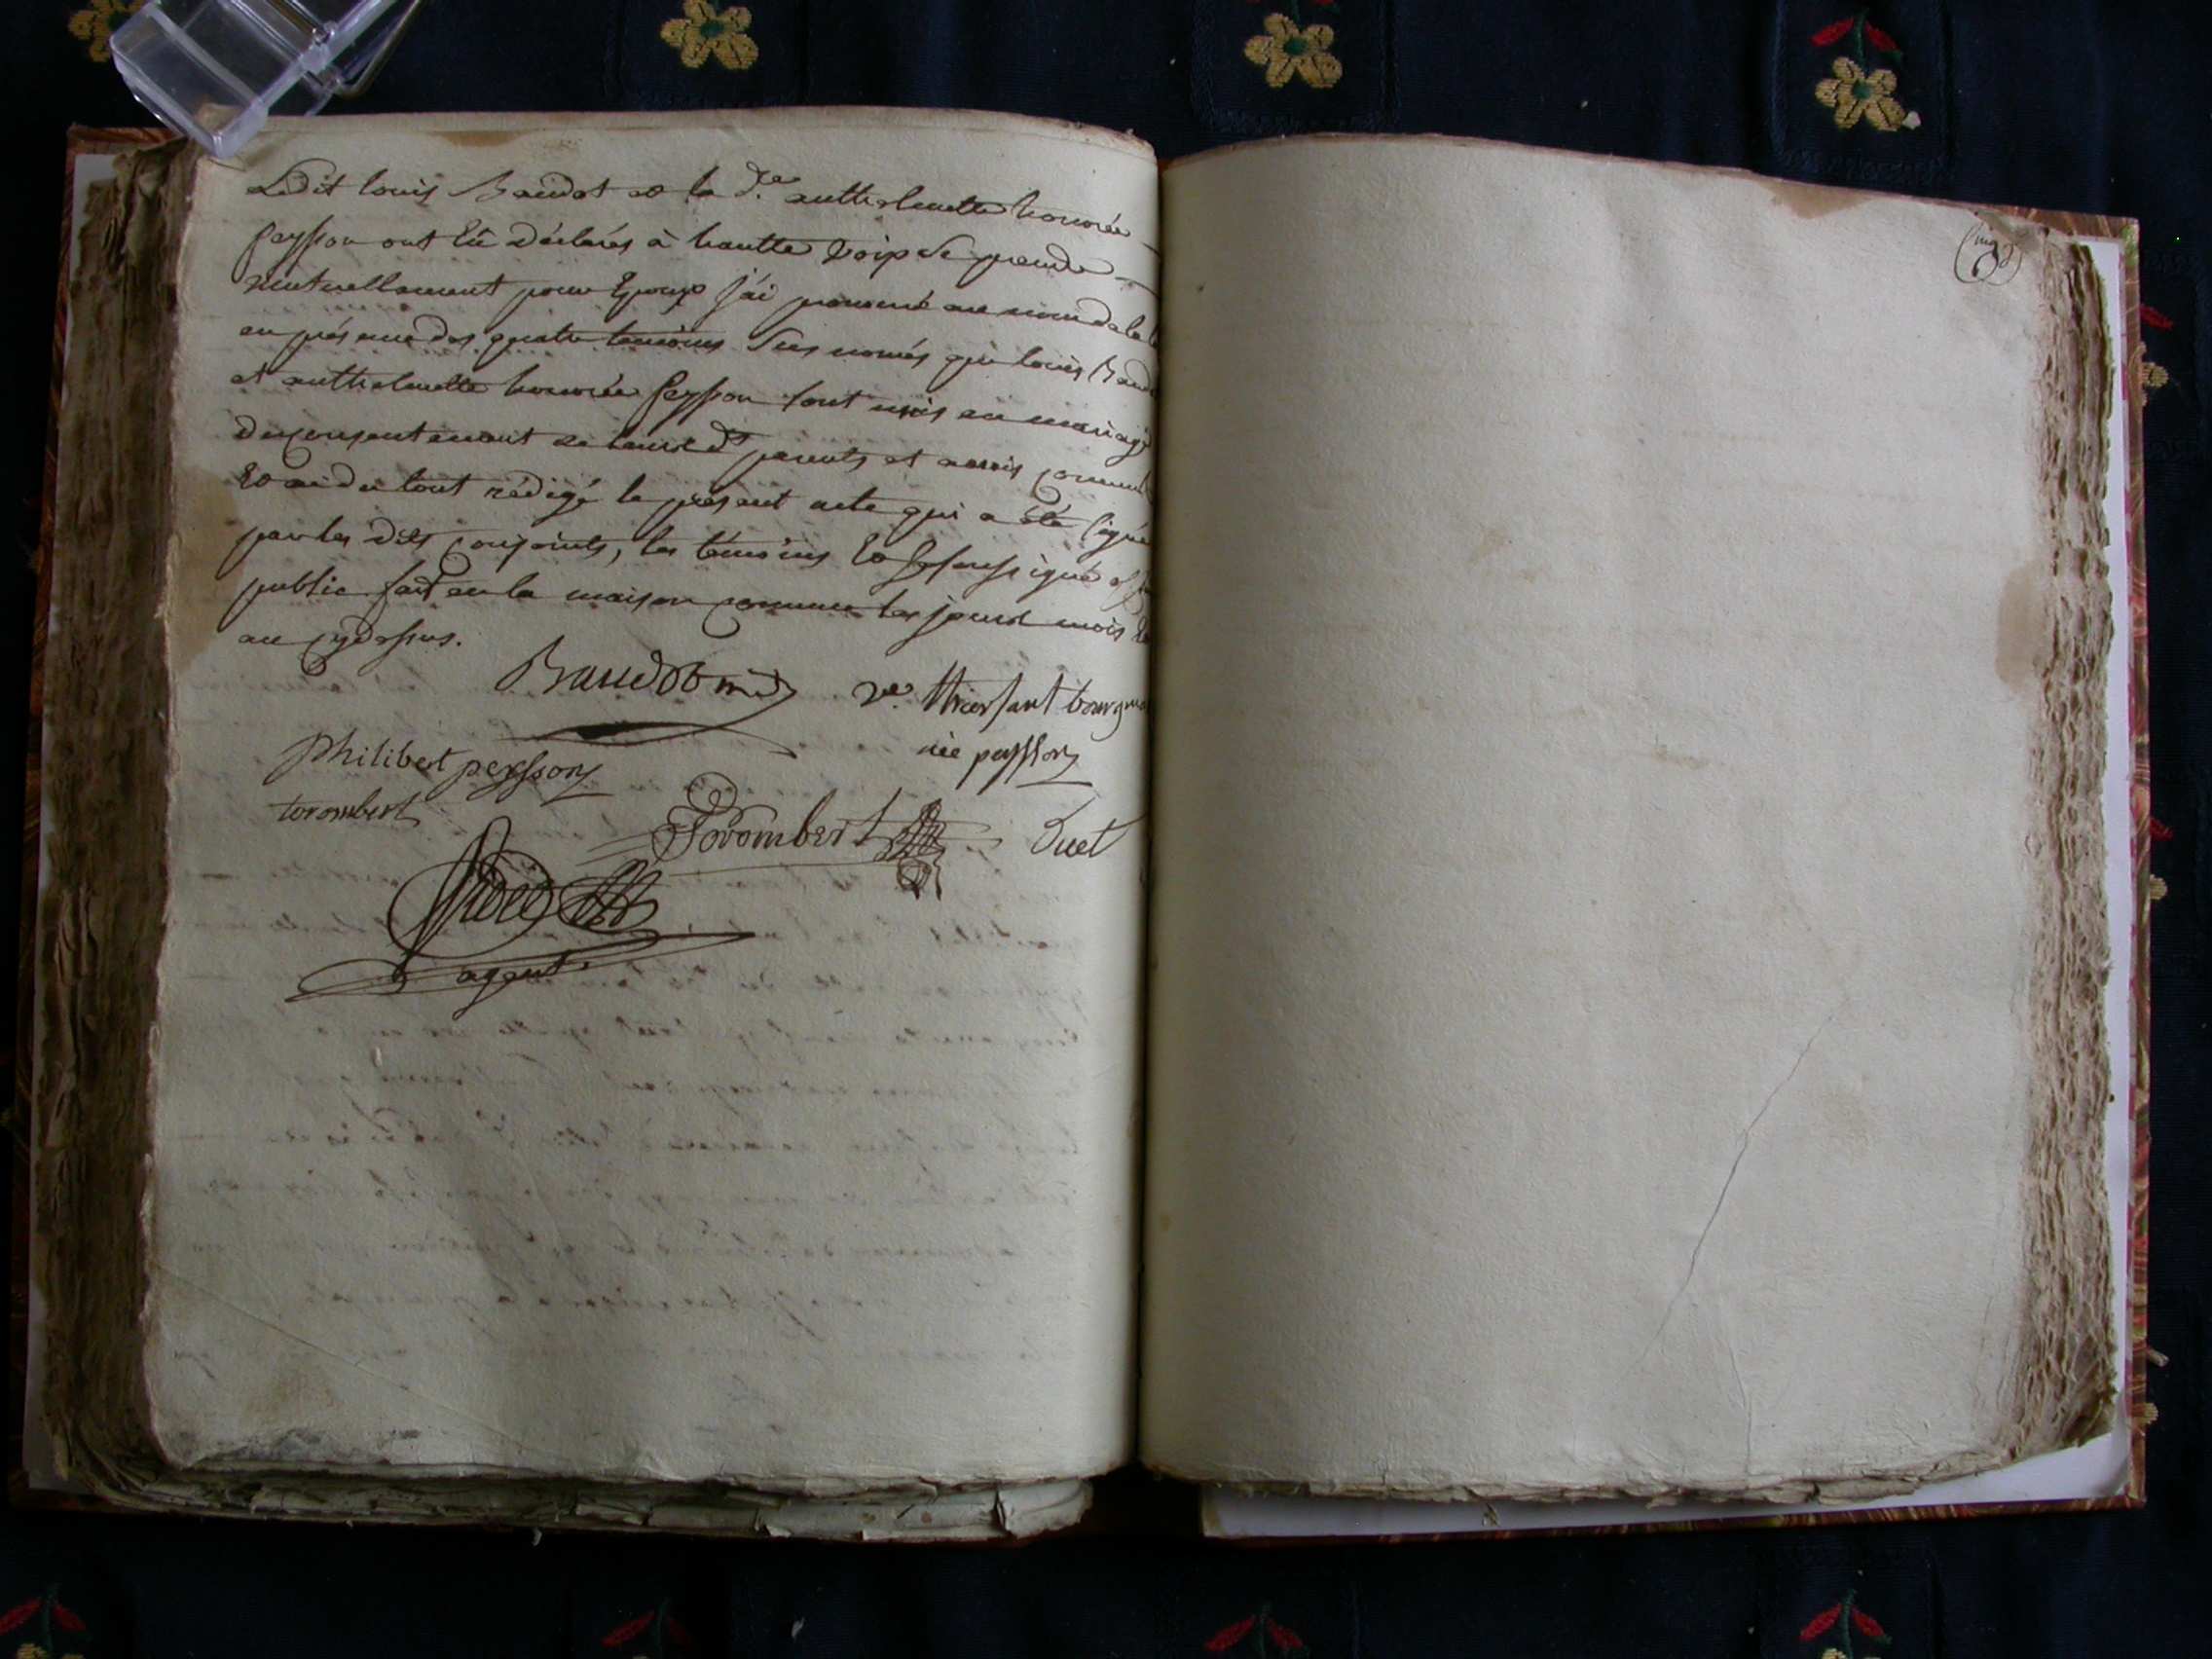 Ledit louis Baudot et la de anthelmette honorée
peysson ont Eû déclarés à hautte voix se prendre
mutuellement pour Epoux j'ai prononcé au nom de la
en présence des quatre temoins sus només que louis Baud
et anthelmette honorée peysson sont unis en mariage
du consentement de leurs dts parents et
Et ai du tout rédigé le présent acte qui a été signé
par les dits conjoints, les témoins Et le soussigné off
public fait en la maison commune les jours mois
an cydessus.
Baudot ve thiersant
née peysson
philibert peysson
torombert Torombert Duet
agent